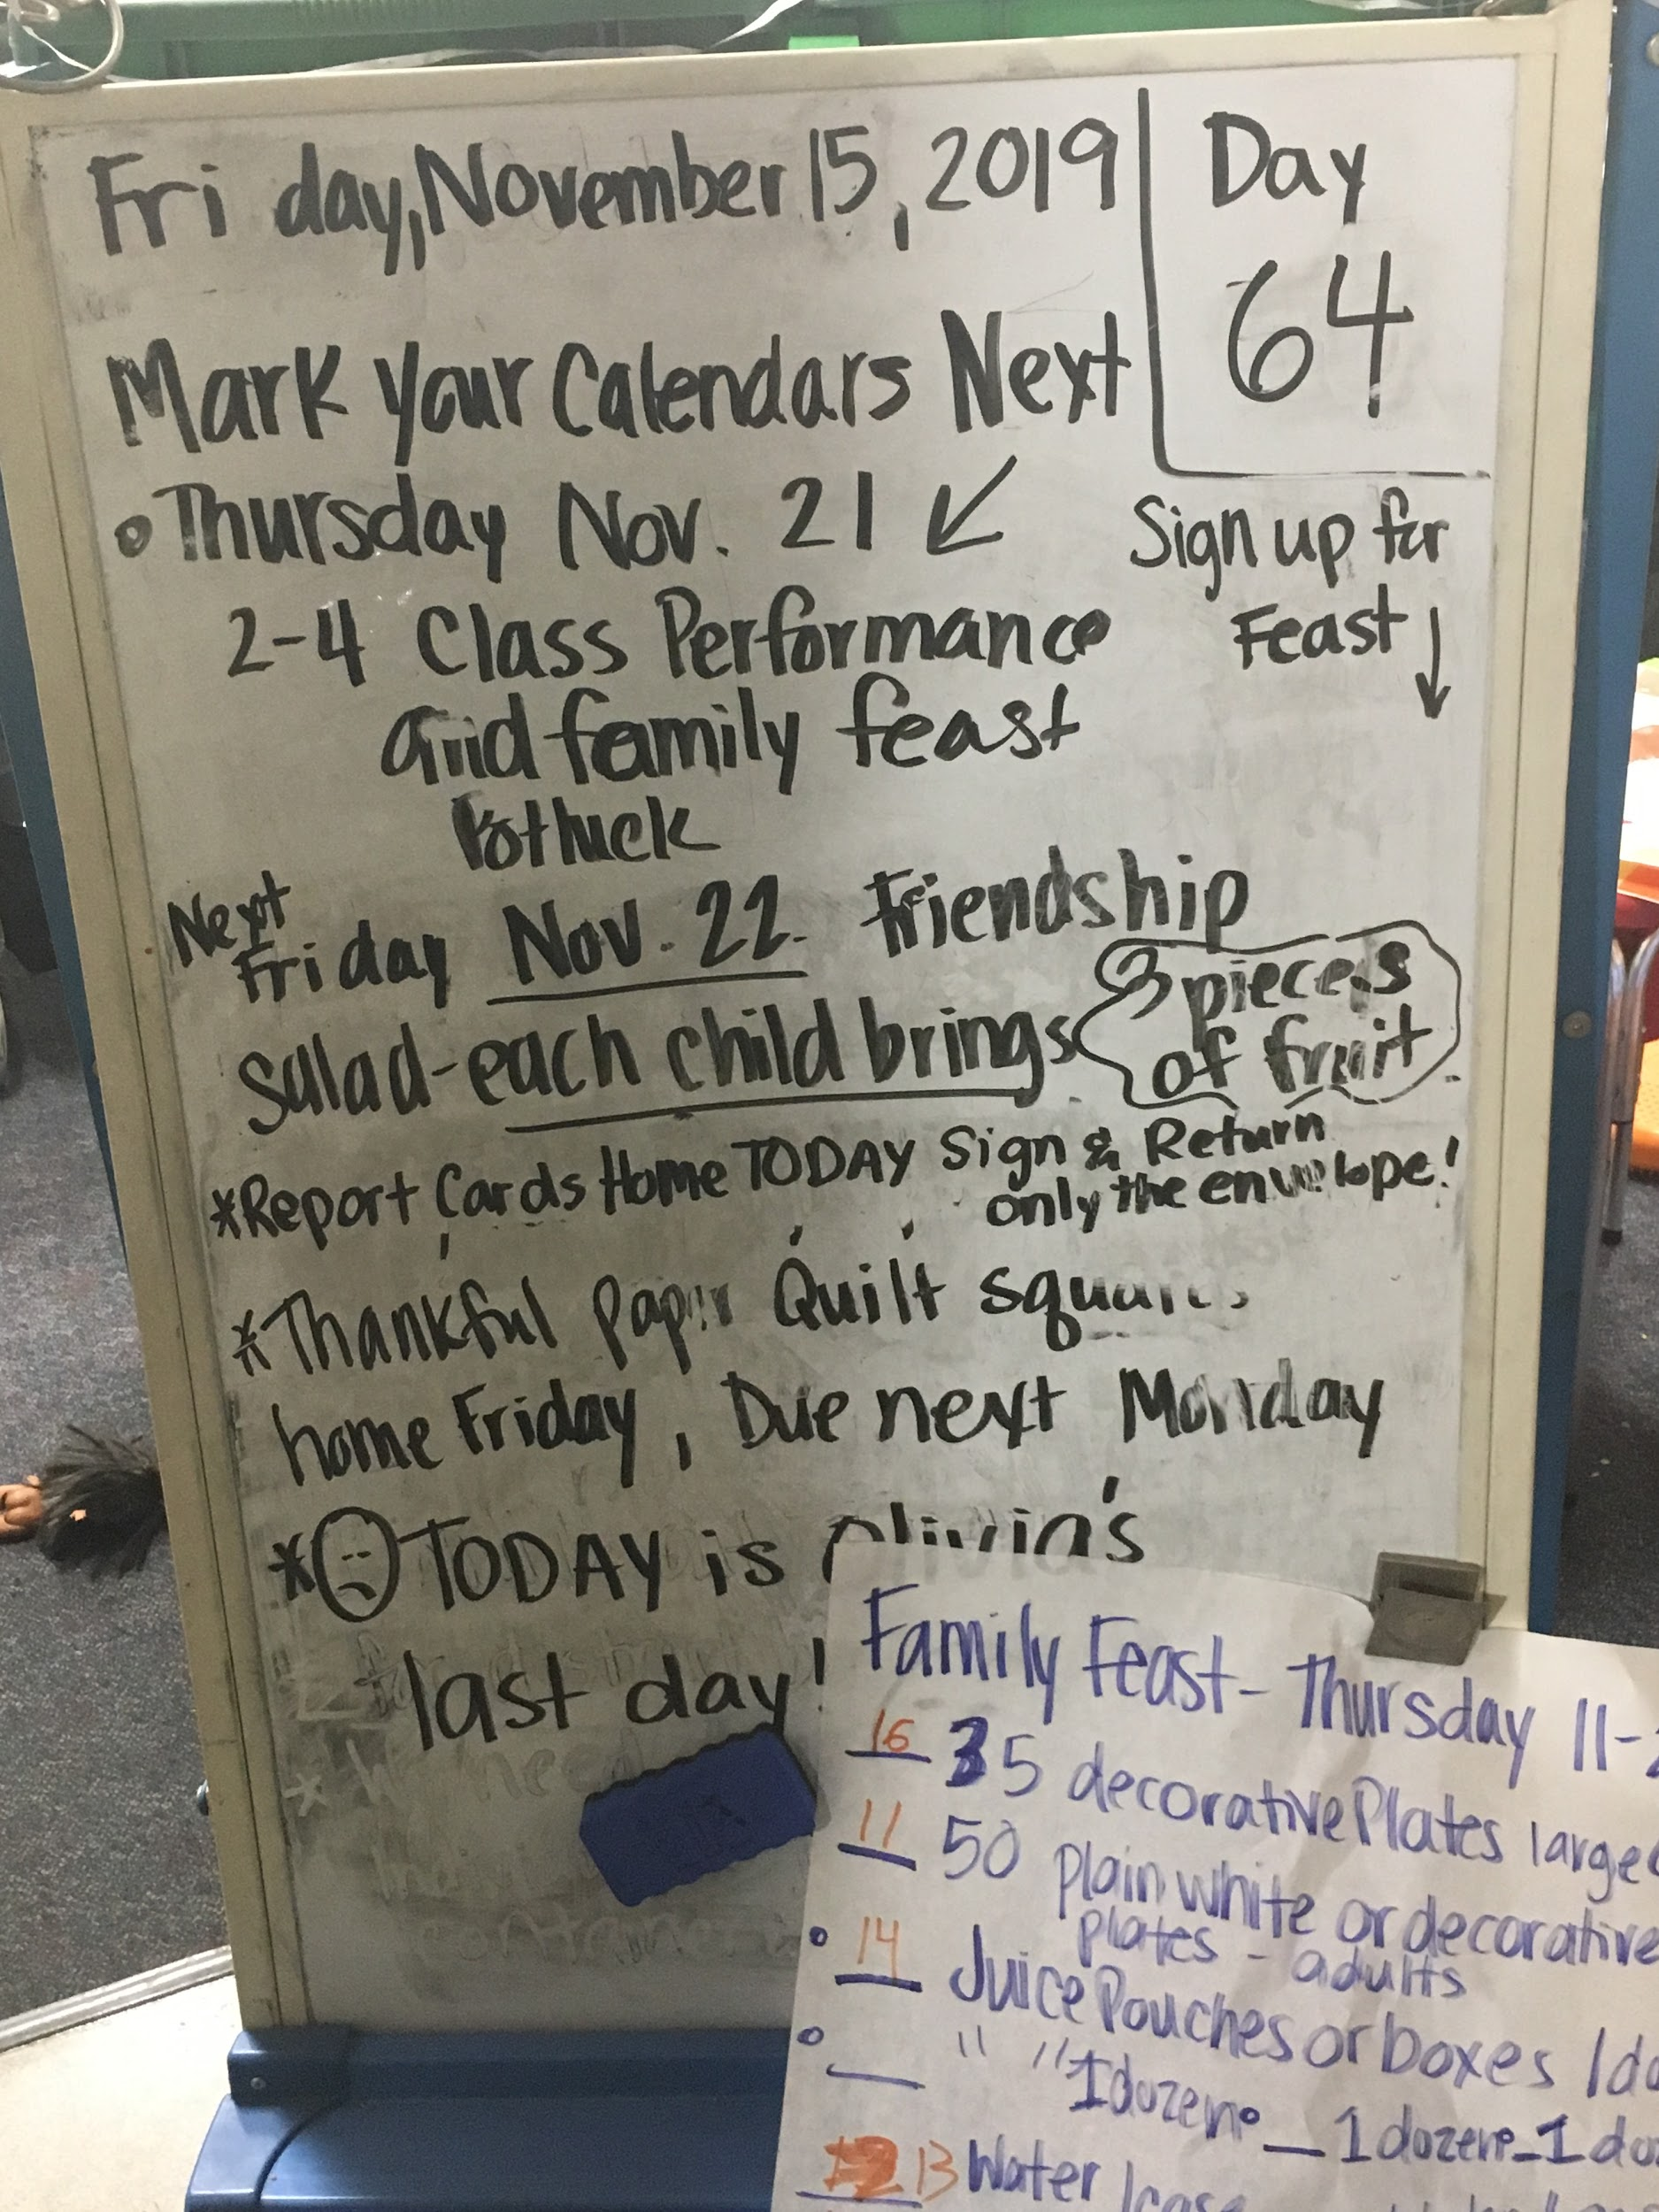 Friday, November 15, 2019
Day
64
Mark your Calendars Next
Thursday Nov. 21
Sign up for
Feast
2-4 Class Performance
and family feast
Potluck
Next
Friday Nov. 22 Friendship
Salad-each child brings 3 pieces
of fruit
*Report Cards Home TODAY Sign & Return
only the envelope!
*Thankful Paper Quilt squares
home Friday, Due next Monday
* TODAY is Olivia's
last day!
Family Feast- Thursday 11-2
16 35 decorative Plates large
11 50 plain white or decorative
plates - adults
14 Juice Pouches or boxes 1do
" " 1 dozen 1 dozen 1 do
13 Water 1case